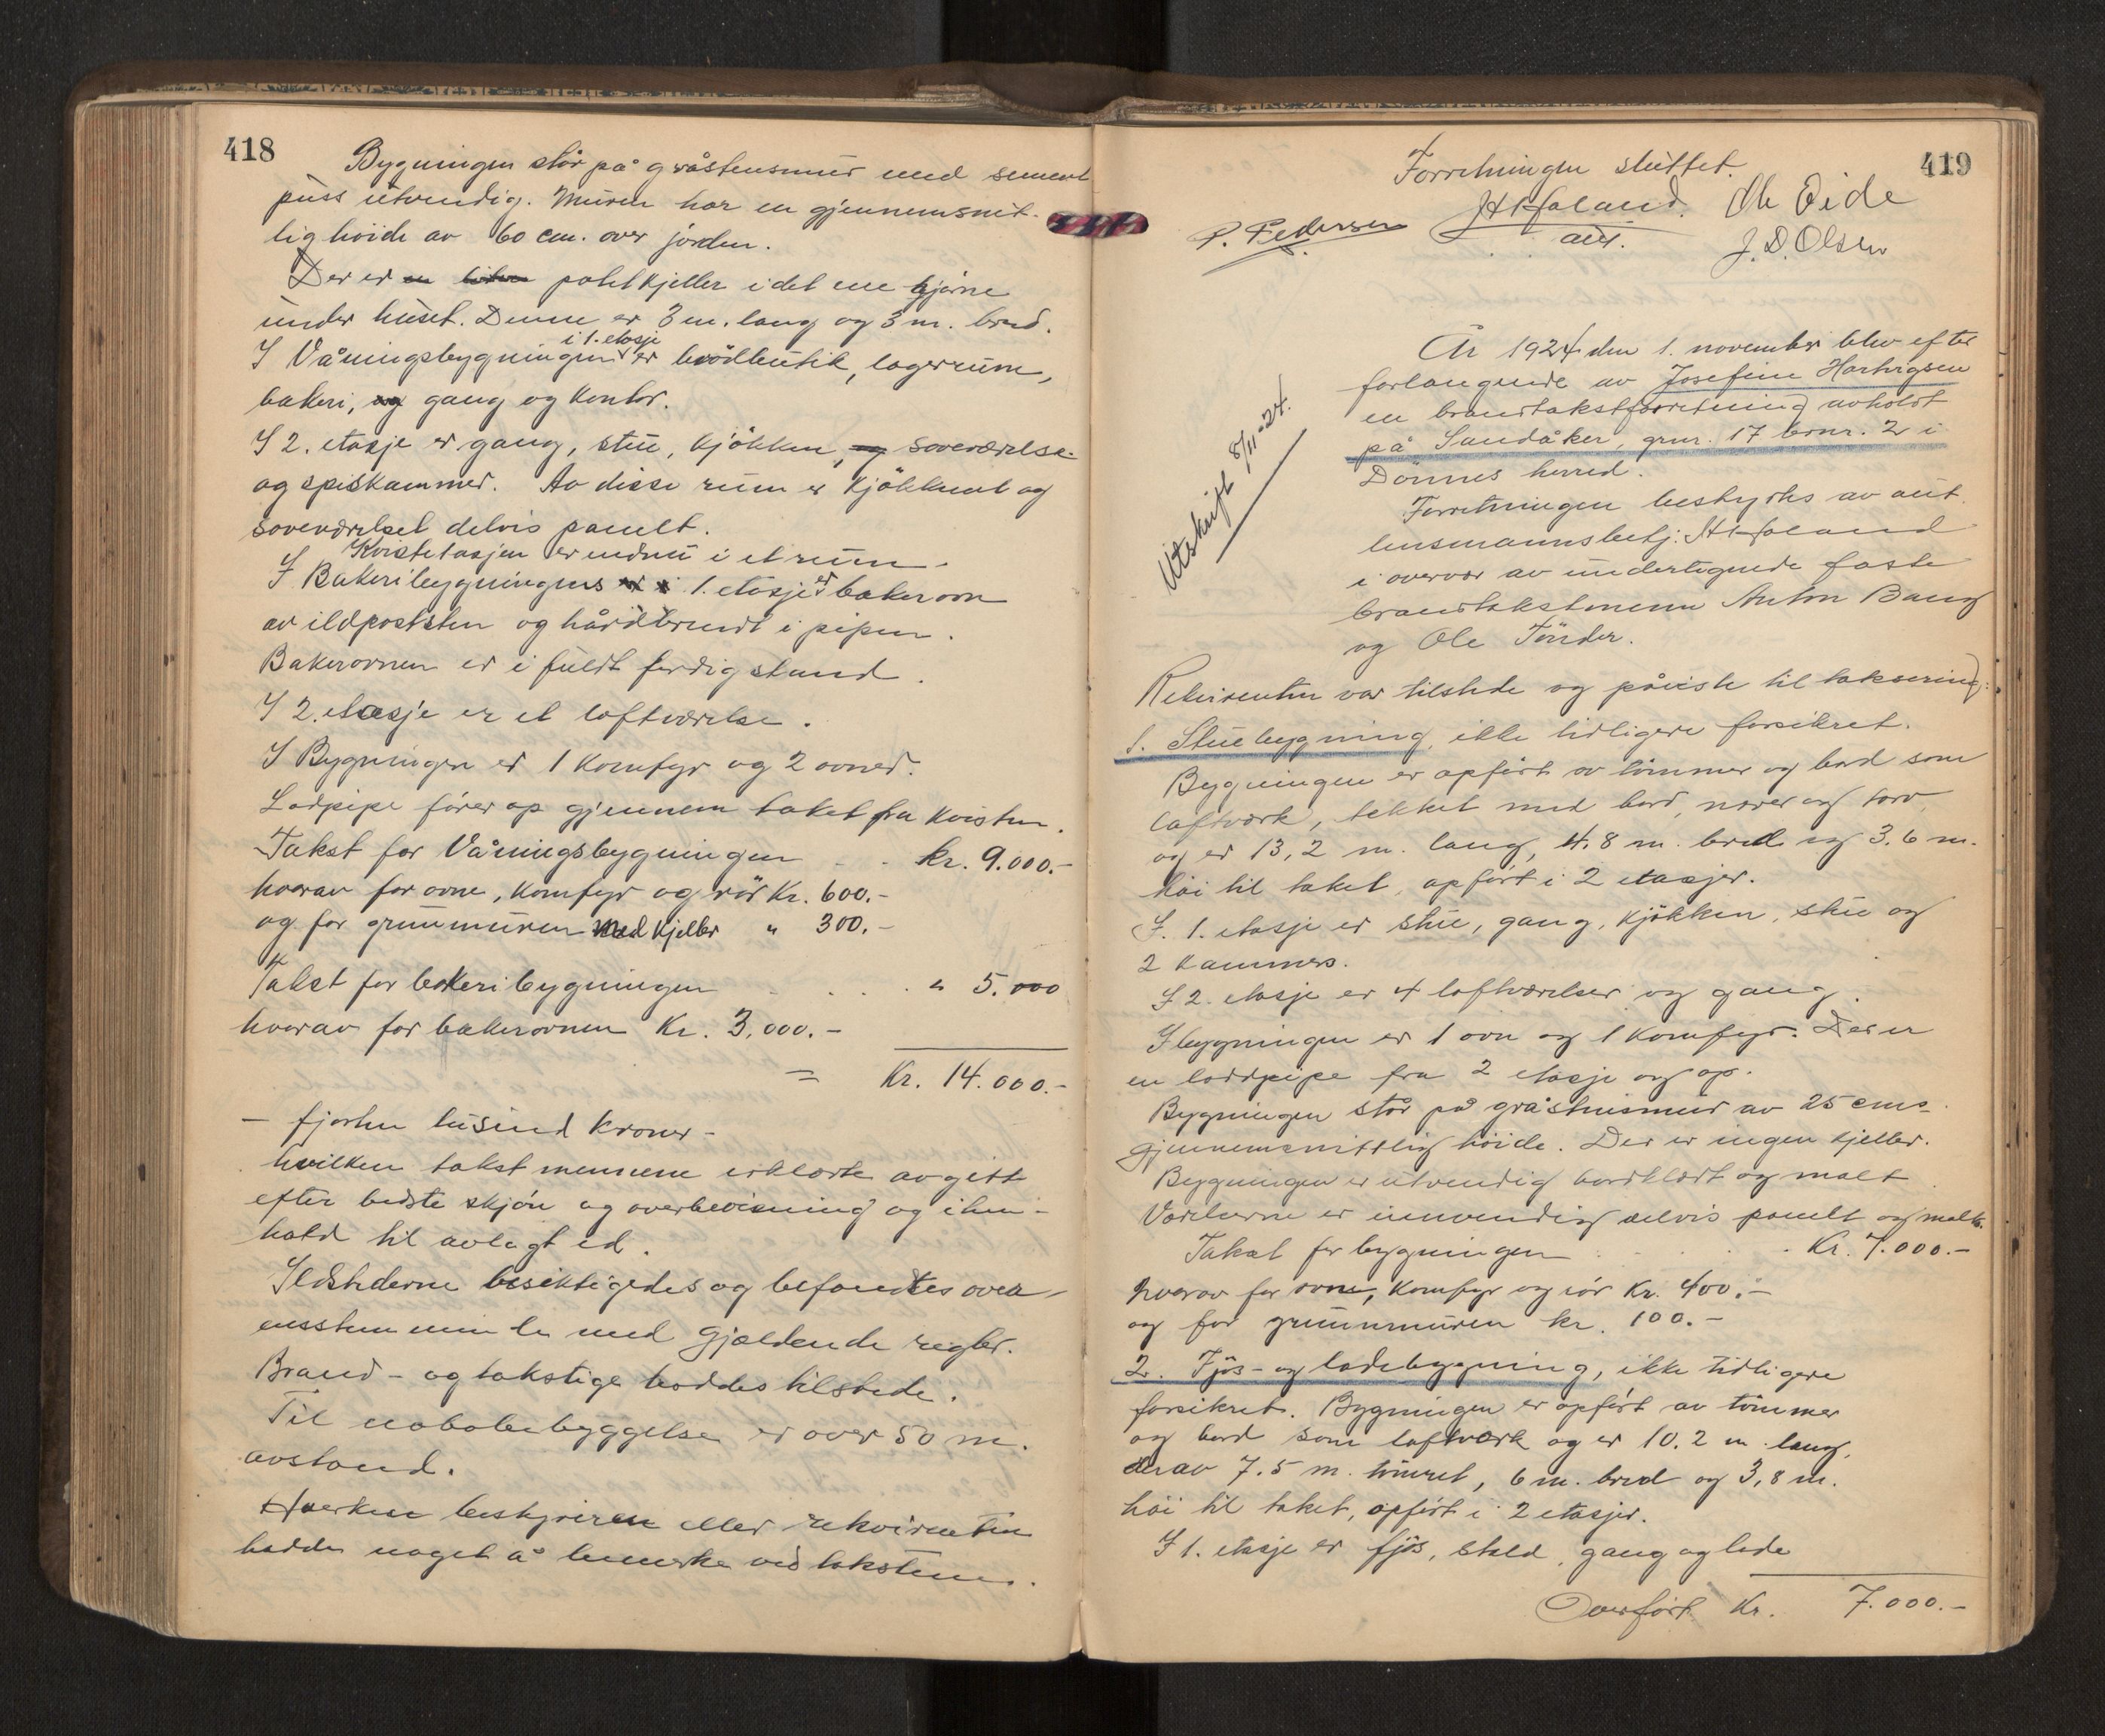 418
Bygningen står på gråstensmur med sement
puss utvendig. Muren har en gjennemsnit-
lig høide av 60 cm. over jorden.
Der er en liten potetkjeller i det ene hjørne
under huset. Denne er 3 m. lang og 3 m. bred.
i 1. etasje
I Våningsbygningen er brødbutik, lagerrum,
bakeri, og gang og kontor.
I 2. etasje er gang, stue, kjøkken, og soveværelse
og spiskammer. Av disse rum er kjøkkenet og
soveværelset delvis panelt.
Kvistetasjen er endnu i et rum.
I Bakeribygningens er i 1. etasje er bakerovn
av ildfaststen og hårdbrendt i pipen.
Bakerovnen er i fuldt ferdig stand.
I 2. etasje er et loftværelse.
I Bygningen er 1 komfyr og 2 ovner.
Lodpipe fører op gjennem taket fra kvisten.
Takst for Våningsbygningen . . kr. 9.000.-
hvorav for ovne, komfyr og rör Kr. 600.-
og for grunmuren med kjeller " 300.-
Takst for bakeribygningen . . . . " 5.000
hvorav for bakerovnen Kr. 3.000.-
= Kr. 14.000.-
- fjorten tusind kroner -
hvilken takst mennene erklærte avgitt
efter bedste skjøn og overbevisning og i hen-
hold til avlagt ed.
Ildstederne besiktigedes og befandtes over-
ensstemmende med gjældende regler.
Brand- og takstige haddes tilstede.
Til nabobebyggelse er over 50 m.
avstand.
Hverken bestyreren eller rekvirenten
hadde noget å bemerke ved taksten.
419
Forretningen sluttet.
P. Pedersen H Hofaland. Ole Eide
aut. J. D. Olsen
Utskrift 8/11-24.
År 1924 den 1. november blev efter
forlangende av Josefine Hartvigsen
en brandtakstforretning avholdt
på Sandåker, gnr. 17 brnr. 2 i
Dönnes herred.
Forretningen bestyrtes av aut.
lensmannsbetj.
i overvær av undertegnede faste
brandtakstmenn Anton Bang
og Ole Tönder.
Rekvirenten var tilstede og påviste til taksering:
1. Stuebygning, ikke tidligere forsikret.
Bygningen er opført av tömmer og bord som
loftværk, tekket med bord, never og torv,
og er 13,2 m. lang, 4,8 m. bred og 3,6 m.
høi til taket, opført i 2 etasjer.
I. 1. etasje er stue, gang, kjøkken, stue og
2 kammers.
I 2. etasje er 4 loftværelser og gang.
I bygningen er 1 ovn og 1 komfyr. Der er
en loddpipe fra 2 etasje og op.
Bygningen står på gråstensmur av 25 cms.
gjennemsnittlig høide. Der er ingen kjeller.
Bygningen er utvendig bordklædt og malt.
Værelserne er innvendig delvis panelt og malt.
Takst for bygningen . . . . Kr. 7.000.-
hvorav for ovne, komfyr og rör Kr. 400.-
og for grunnmuren kr. 100.-
2. Fjös- og ladebygning, ikke tidligere
forsikret. Bygningen er opført av tömmer
og bord som loftværk og er 10.2 m. lang,
derav 7.5 m. tömret, 6 m. bred og 3,8 m.
høi til taket, opført i 2 etasjer.
I 1. etasje er fjös, stald, gang og lade
Overført Kr. 7.000.-